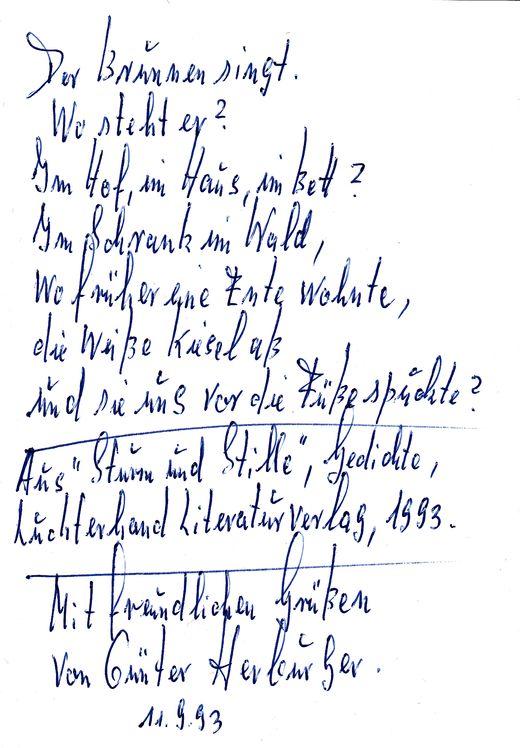 Der Brunnen singt.
Wo steht er?
Im Hof, im Haus, im Bett?
Im Schrank im Wald,
Wo früher eine Ente wohnte,
die Weiße Kiesel aß
und sie uns vor die Füße spuckte?
Aus "Sturm und Stille", Gedichte,
Luchterhand Literaturverlag, 1993.
Mit freundlichen Grüßen
Von Günter Herburger.
11.9.93